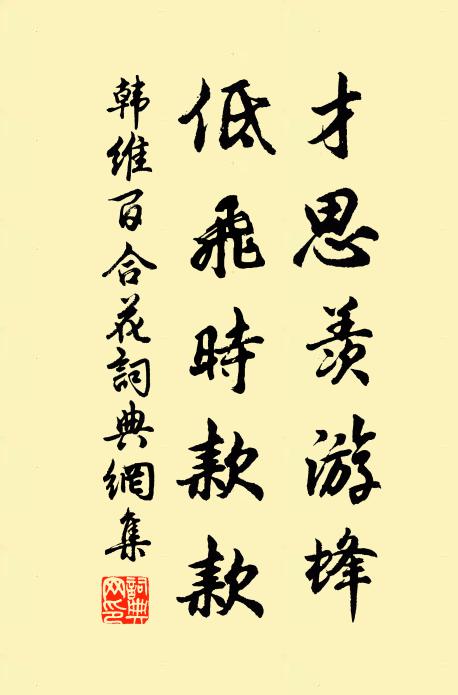 才思羨游蜂
低飛時款款
韩維百合花詞典網集
詞典网印